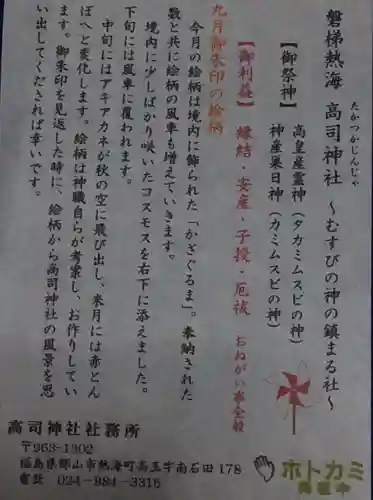 磐梯熱海 高司神社 〜むすびの神の鎮まる社〜
たかつかじんじゃ
【御祭神】 高皇産霊神（タカミムスビの神）
神産巣日神（カミムスビの神）
【御利益】 縁結・安産・子授・厄祓 おねがい事全般
九月御朱印の絵柄
今月の絵柄は境内に飾られた「かざぐるま」。奉納された
数と共に絵柄の風車も増えていきます。
境内に少しばかり咲いたコスモスを右下に添えました。
下旬には風車に覆われます。
中旬にはアキアカネが秋の空に飛び出し、来月には赤とん
ぼへと変化します。絵柄は神職自らが考案し、お作りしてい
ます。御朱印を見返した時に、絵柄から高司神社の風景を思
い出してくだされば幸いです。
高司神社社務所
〒963-1302
福島県郡山市熱海町高玉字南石田178
電話 024-984-3315
ホトカミ